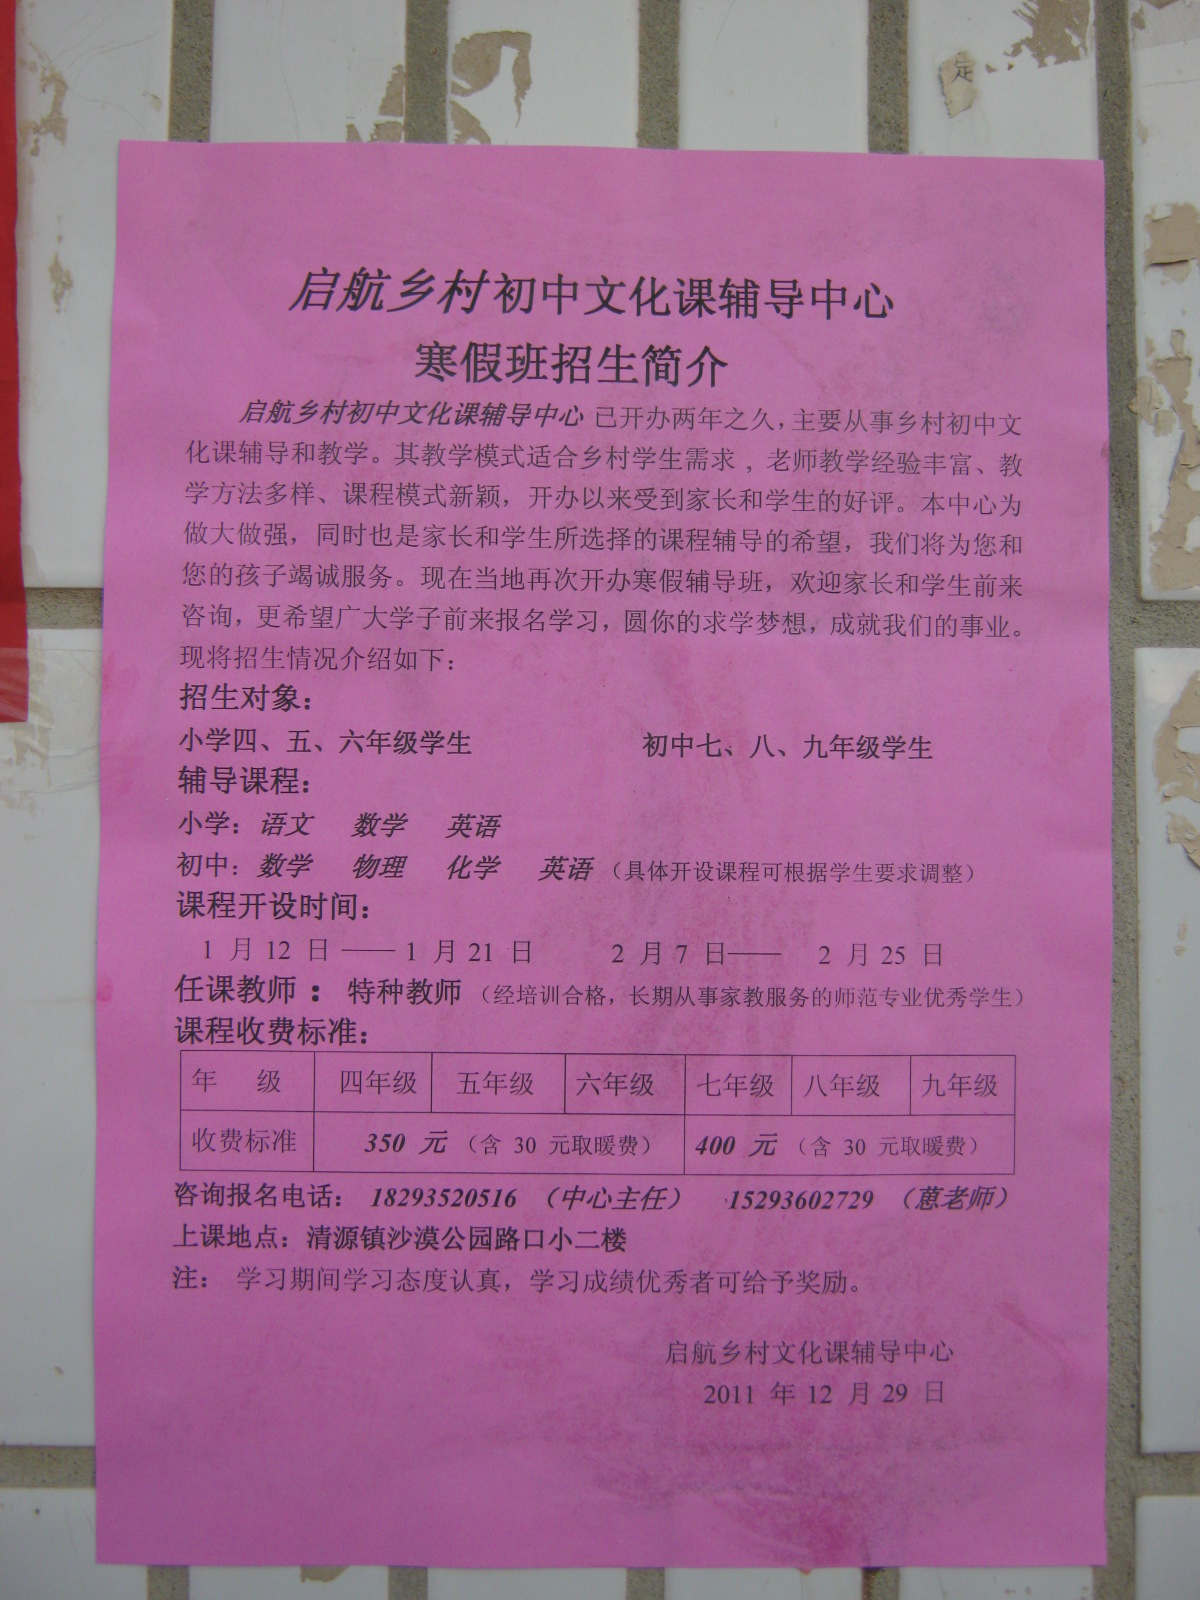 定
启航乡村初中文化课辅导中心
寒假班招生简介
启航乡村初中文化课辅导中心 已开办两年之久，主要从事乡村初中文
化课辅导和教学。其教学模式适合乡村学生需求，老师教学经验丰富、教
学方法多样、课程模式新颖，开办以来受到家长和学生的好评。本中心为
做大做强，同时也是家长和学生所选择的课程辅导的希望，我们将为您和
您的孩子竭诚服务。现在当地再次开办寒假辅导班，欢迎家长和学生前来
咨询，更希望广大学子前来报名学习，圆你的求学梦想，成就我们的事业。
现将招生情况介绍如下：
招生对象：
小学四、五、六年级学生 初中七、八、九年级学生
辅导课程：
小学：语文 数学 英语
初中：数学 物理 化学 英语（具体开设课程可根据学生要求调整）
课程开设时间：
1 月 12 日 —— 1 月 21 日 2 月 7 日—— 2 月 25 日
任课教师 ： 特种教师 （经培训合格，长期从事家教服务的师范专业优秀学生）
课程收费标准：
年 级 四年级 五年级 六年级 七年级 八年级 九年级
收费标准 350 元（含 30 元取暖费） 400 元（含 30 元取暖费）
咨询报名电话： 18293520516 （中心主任） 15293602729 （葸老师）
上课地点：清源镇沙漠公园路口小二楼
注： 学习期间学习态度认真，学习成绩优秀者可给予奖励。
启航乡村文化课辅导中心
2011 年 12 月 29 日